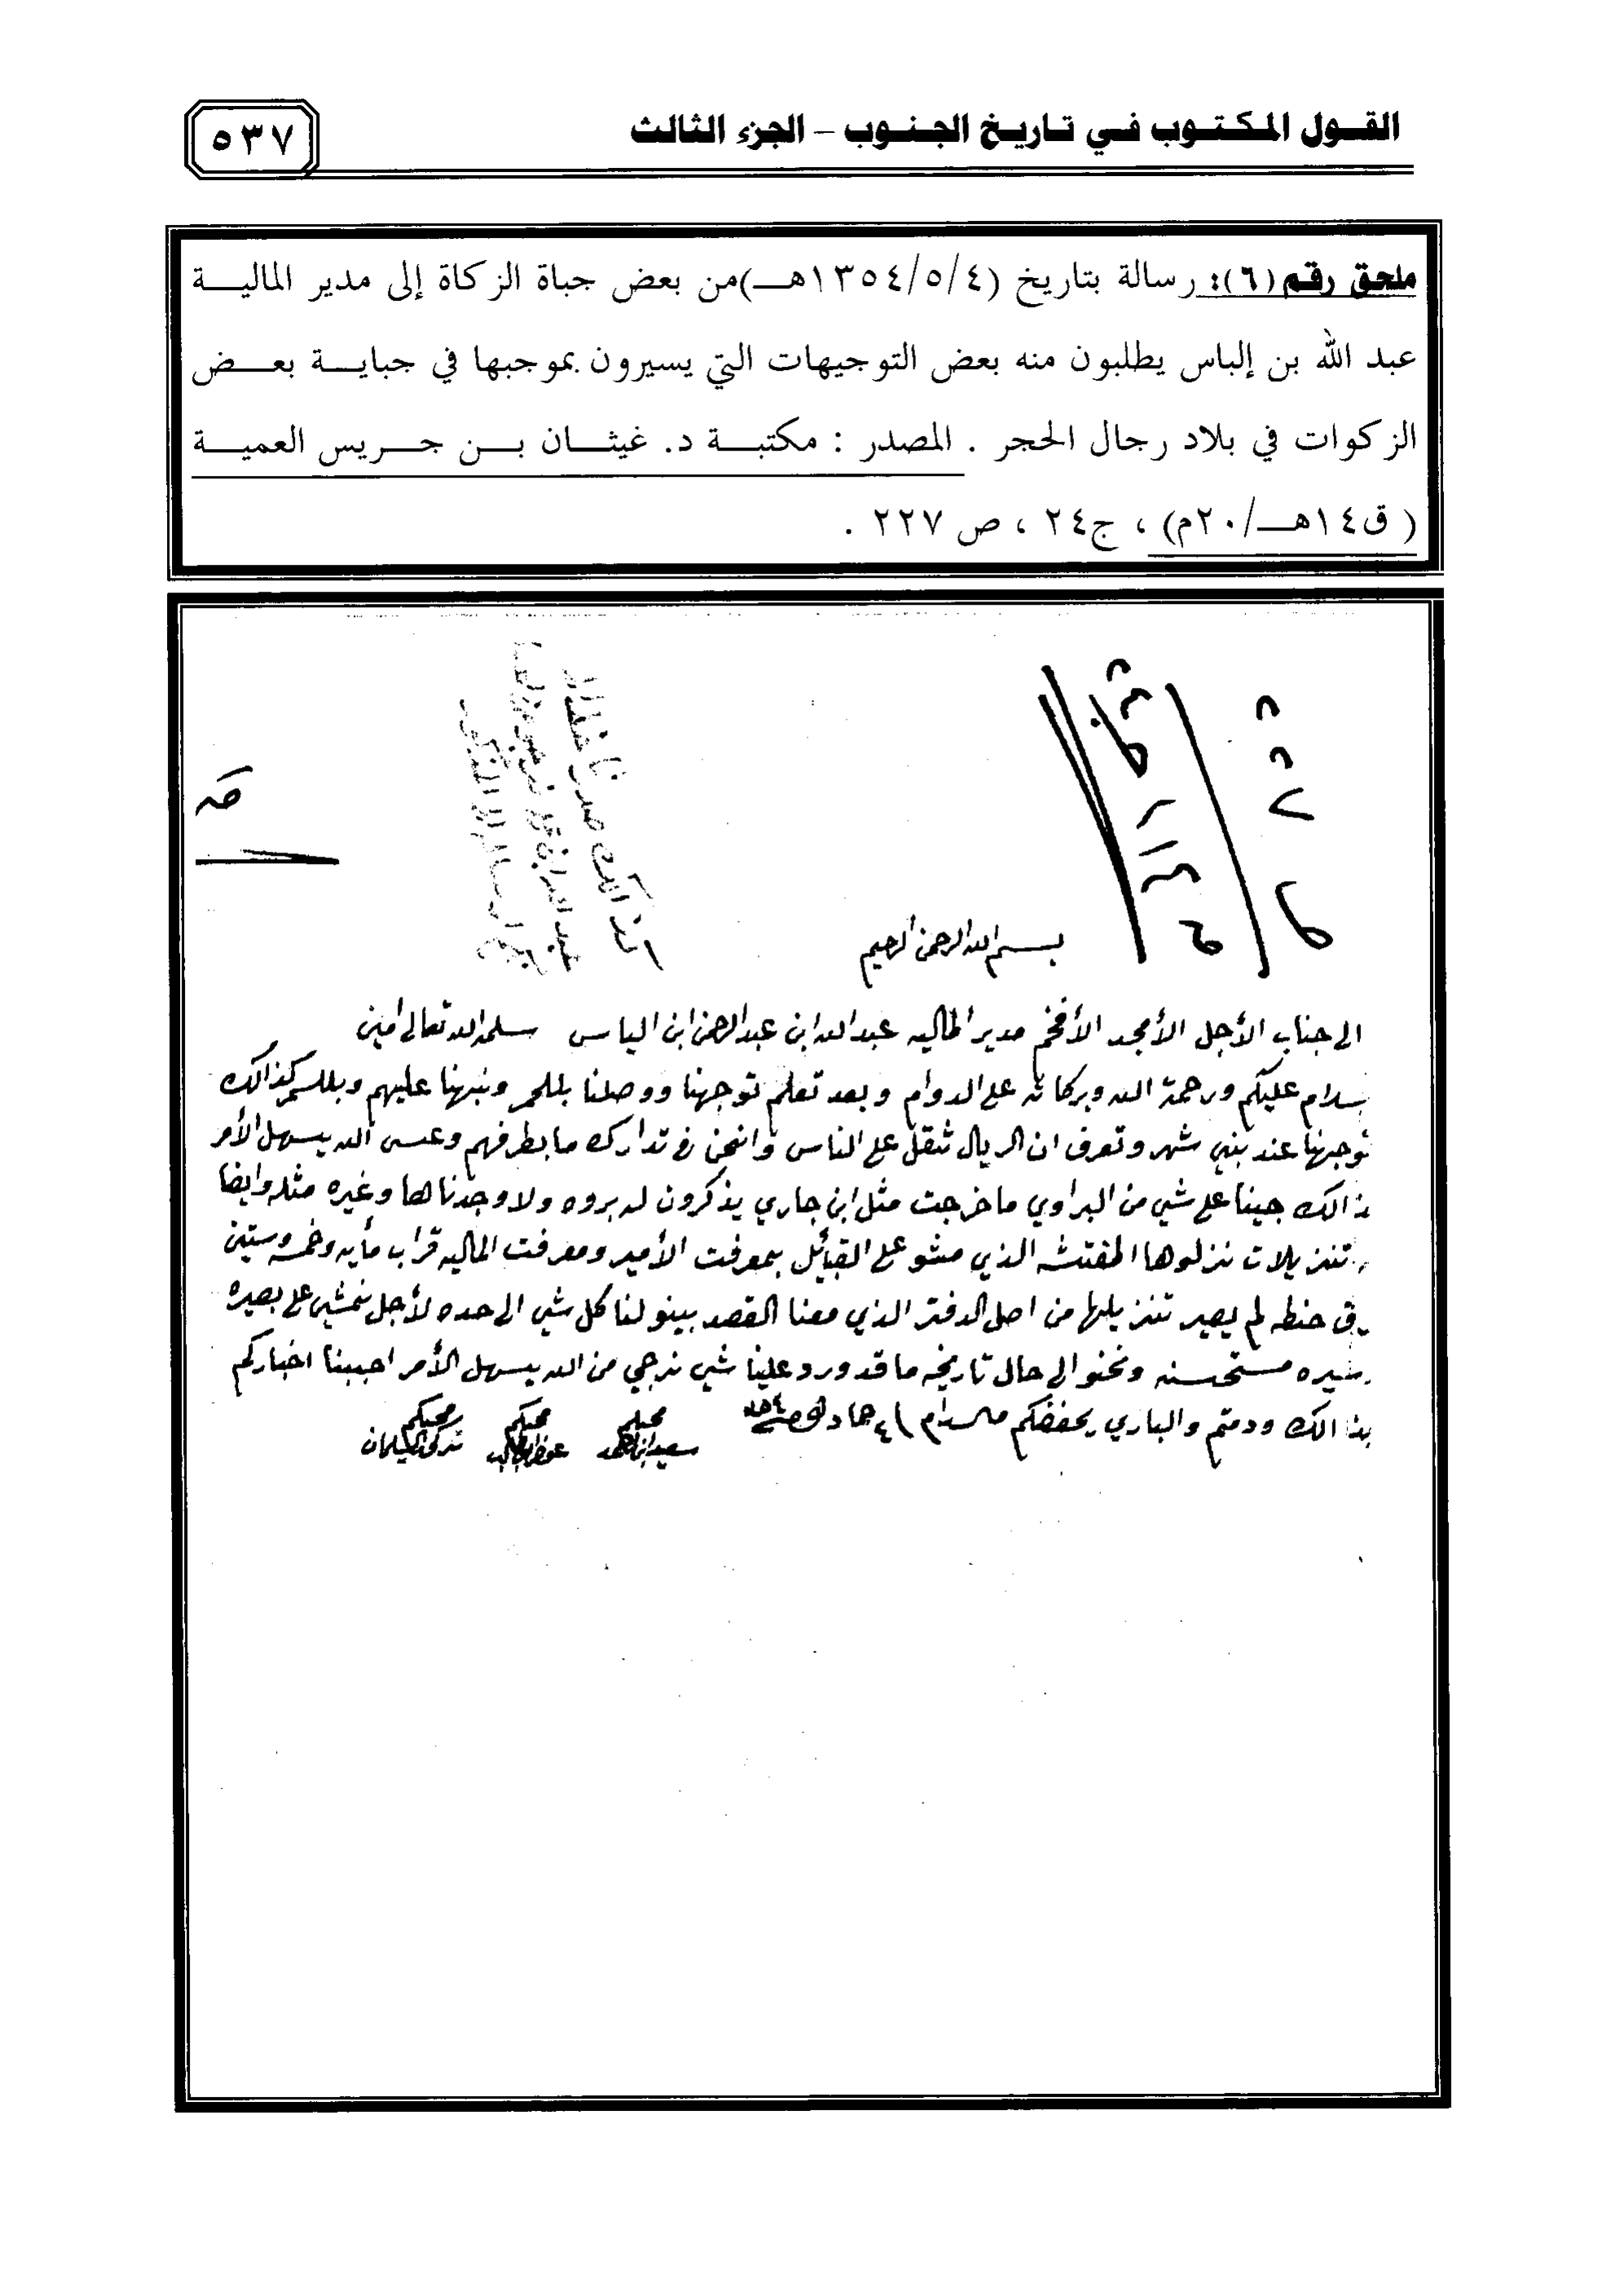 القول المكتوب في تاريخ الجنوب – الجزء الثالث
٥٣٧
ملحق رقم (٦): رسالة بتاريخ (١٣٥٤/٥/٤هـ) من بعض جباة الزكاة إلى مدير المالية
عبد الله بن إلياس يطلبون منه بعض التوجيهات التي يسيرون بموجبها في جباية بعض
الزكوات في بلاد رجال الحجر . المصدر : مكتبة د. غيثان بن جريس العمية
( ق١٤هـ/٢٠م) ، ج٢٤ ، ص ٢٢٧ .
بسم الله الرحمن الرحيم
الى جناب الأجل الأمجد الأفخم مدير الماليه عبد الله ابن عبد الرحمن ابن الياس سلمه الله تعالى امين
سلام عليكم ورحمة الله وبركاته على الدوام وبعد تعلم توجهنا ووصلنا بللحمر ونبهنا عليهم وبللسمر كذالك
توجهنا عند بني شهر وتعرف ان الريال ثقل على الناس وانحن في تدارك ما بطرفهم وعسى الله يسهل الأمر
ذالك جينا على شي من البراوي ما خرجت مثل ابن جاري يذكرون له بروه ولا وجدناها وغيره مثله وايضا
تنزيلات نزلوها المفتشه الذي مشو على القبائل بمعرفت الأمير ومعرفت الماليه قراب مأيه وخمسه وستين
فرق حنطه لم يصير تنزيلها من اصل الدفتر الذي معنا القصد بينو لنا كل شي الى حده لأجل نمشي على بصيره
سيره مستحسنه ونحنو الى حال تاريخه ما قد ورد علينا شي نرجي من الله يسهل الأمر احببنا اخباركم
بذالك ودمتم والباري يحفضكم والسلام ٤ جماد
محبكم محبكم محبكم
سعيد ابن